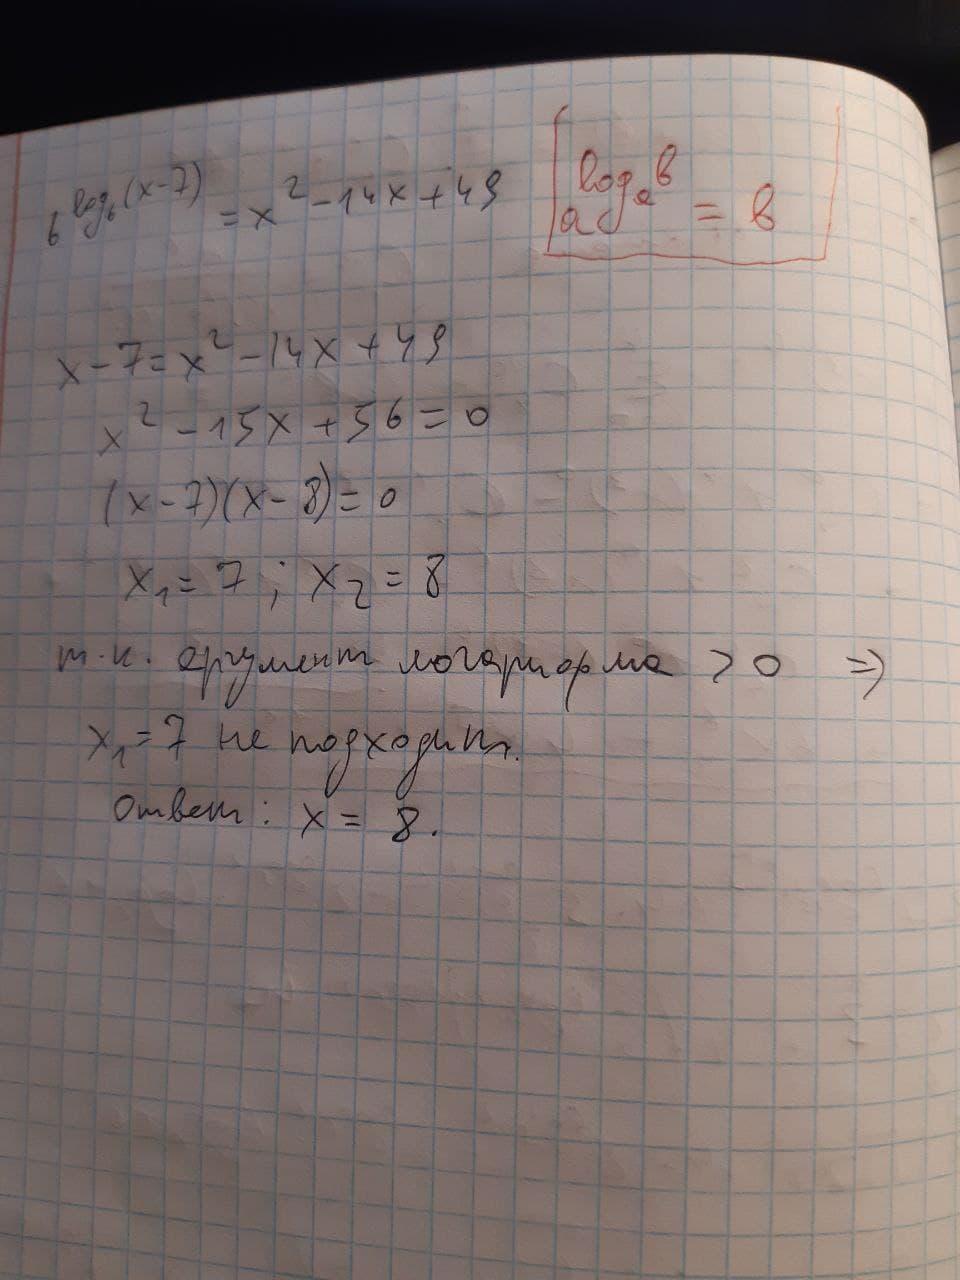 6^{log_6(x-7)} = x^2 - 14x + 49
a^{log_a b} = b
x - 7 = x^2 - 14x + 49
x^2 - 15x + 56 = 0
(x - 7)(x - 8) = 0
x_1 = 7 ; x_2 = 8
т.к. аргумент логарифма > 0 =>
x_1 = 7 не подходит.
Ответ: x = 8.